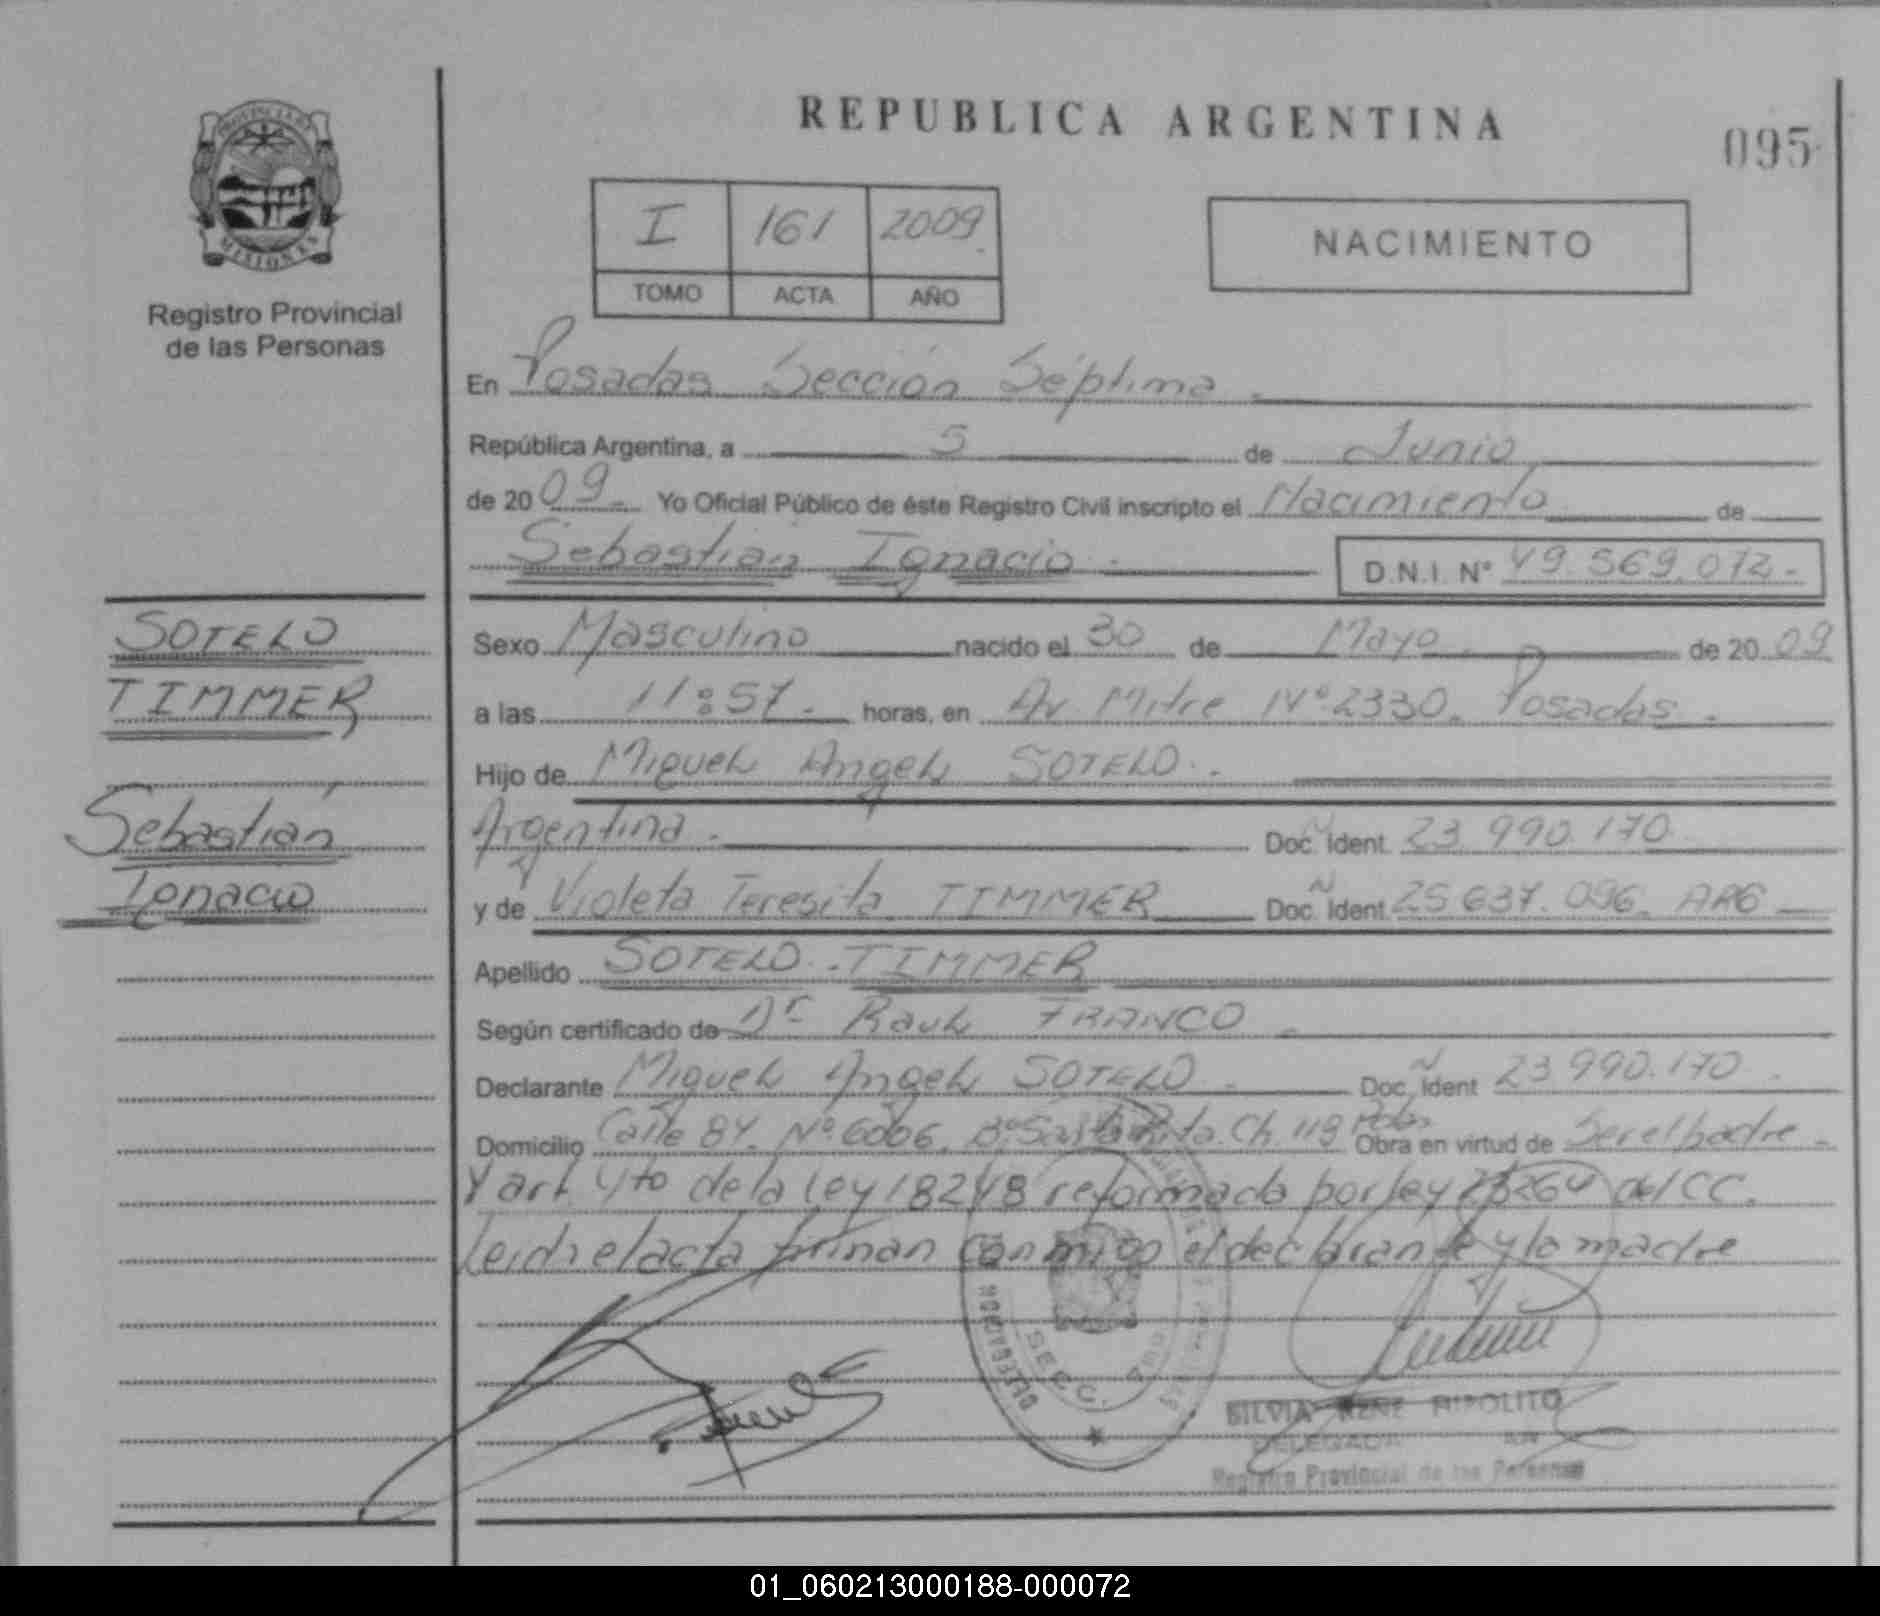 REPUBLICA ARGENTINA
095
PROVINCIA DE
MISIONES
Registro Provincial
de las Personas
I 161 2009
TOMO ACTA AÑO
NACIMIENTO
En Posadas Sección Séptima
República Argentina, a 5 de Junio
de 2009 Yo Oficial Público de éste Registro Civil inscripto el Nacimiento de
Sebastián Ignacio D.N.I. Nº 49.569.072
SOTELO
TIMMER
Sebastián
Ignacio
Sexo Masculino nacido el 30 de Mayo de 2009
a las 11:57 horas, en Av Mitre Nº 2330. Posadas.
Hijo de Miguel Angel SOTELO.
Argentina. Doc. Ident. 23.990.170
y de Violeta Teresita TIMMER Doc. Ident. 25.637.096. ARG
Apellido SOTELO TIMMER
Según certificado de Dr Raul FRANCO
Declarante Miguel Angel SOTELO Doc. Ident 23.990.170
Domicilio Calle 84. Nº 6006. Bº Santa Rita. Ch. 119 Pdas Obra en virtud de Ser el padre
y art. 4to de la ley 18248 reformada por ley 23264 del CC.
Leida el acta firman conmigo el declarante y la madre
DELEGACION
SECC. 7ma
SILVIA RENE HIPOLITO
DELEGADA
Registro Provincial de las Personas
01_060213000188-000072